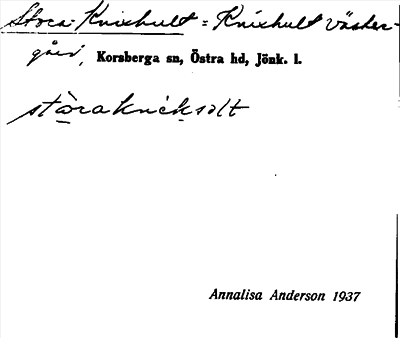 Stora Knixhult = Knixhult Väster-
gård, Korsberga sn, Östra hd, Jönk. l.
stòraknìksọlt
Annalisa Anderson 1937